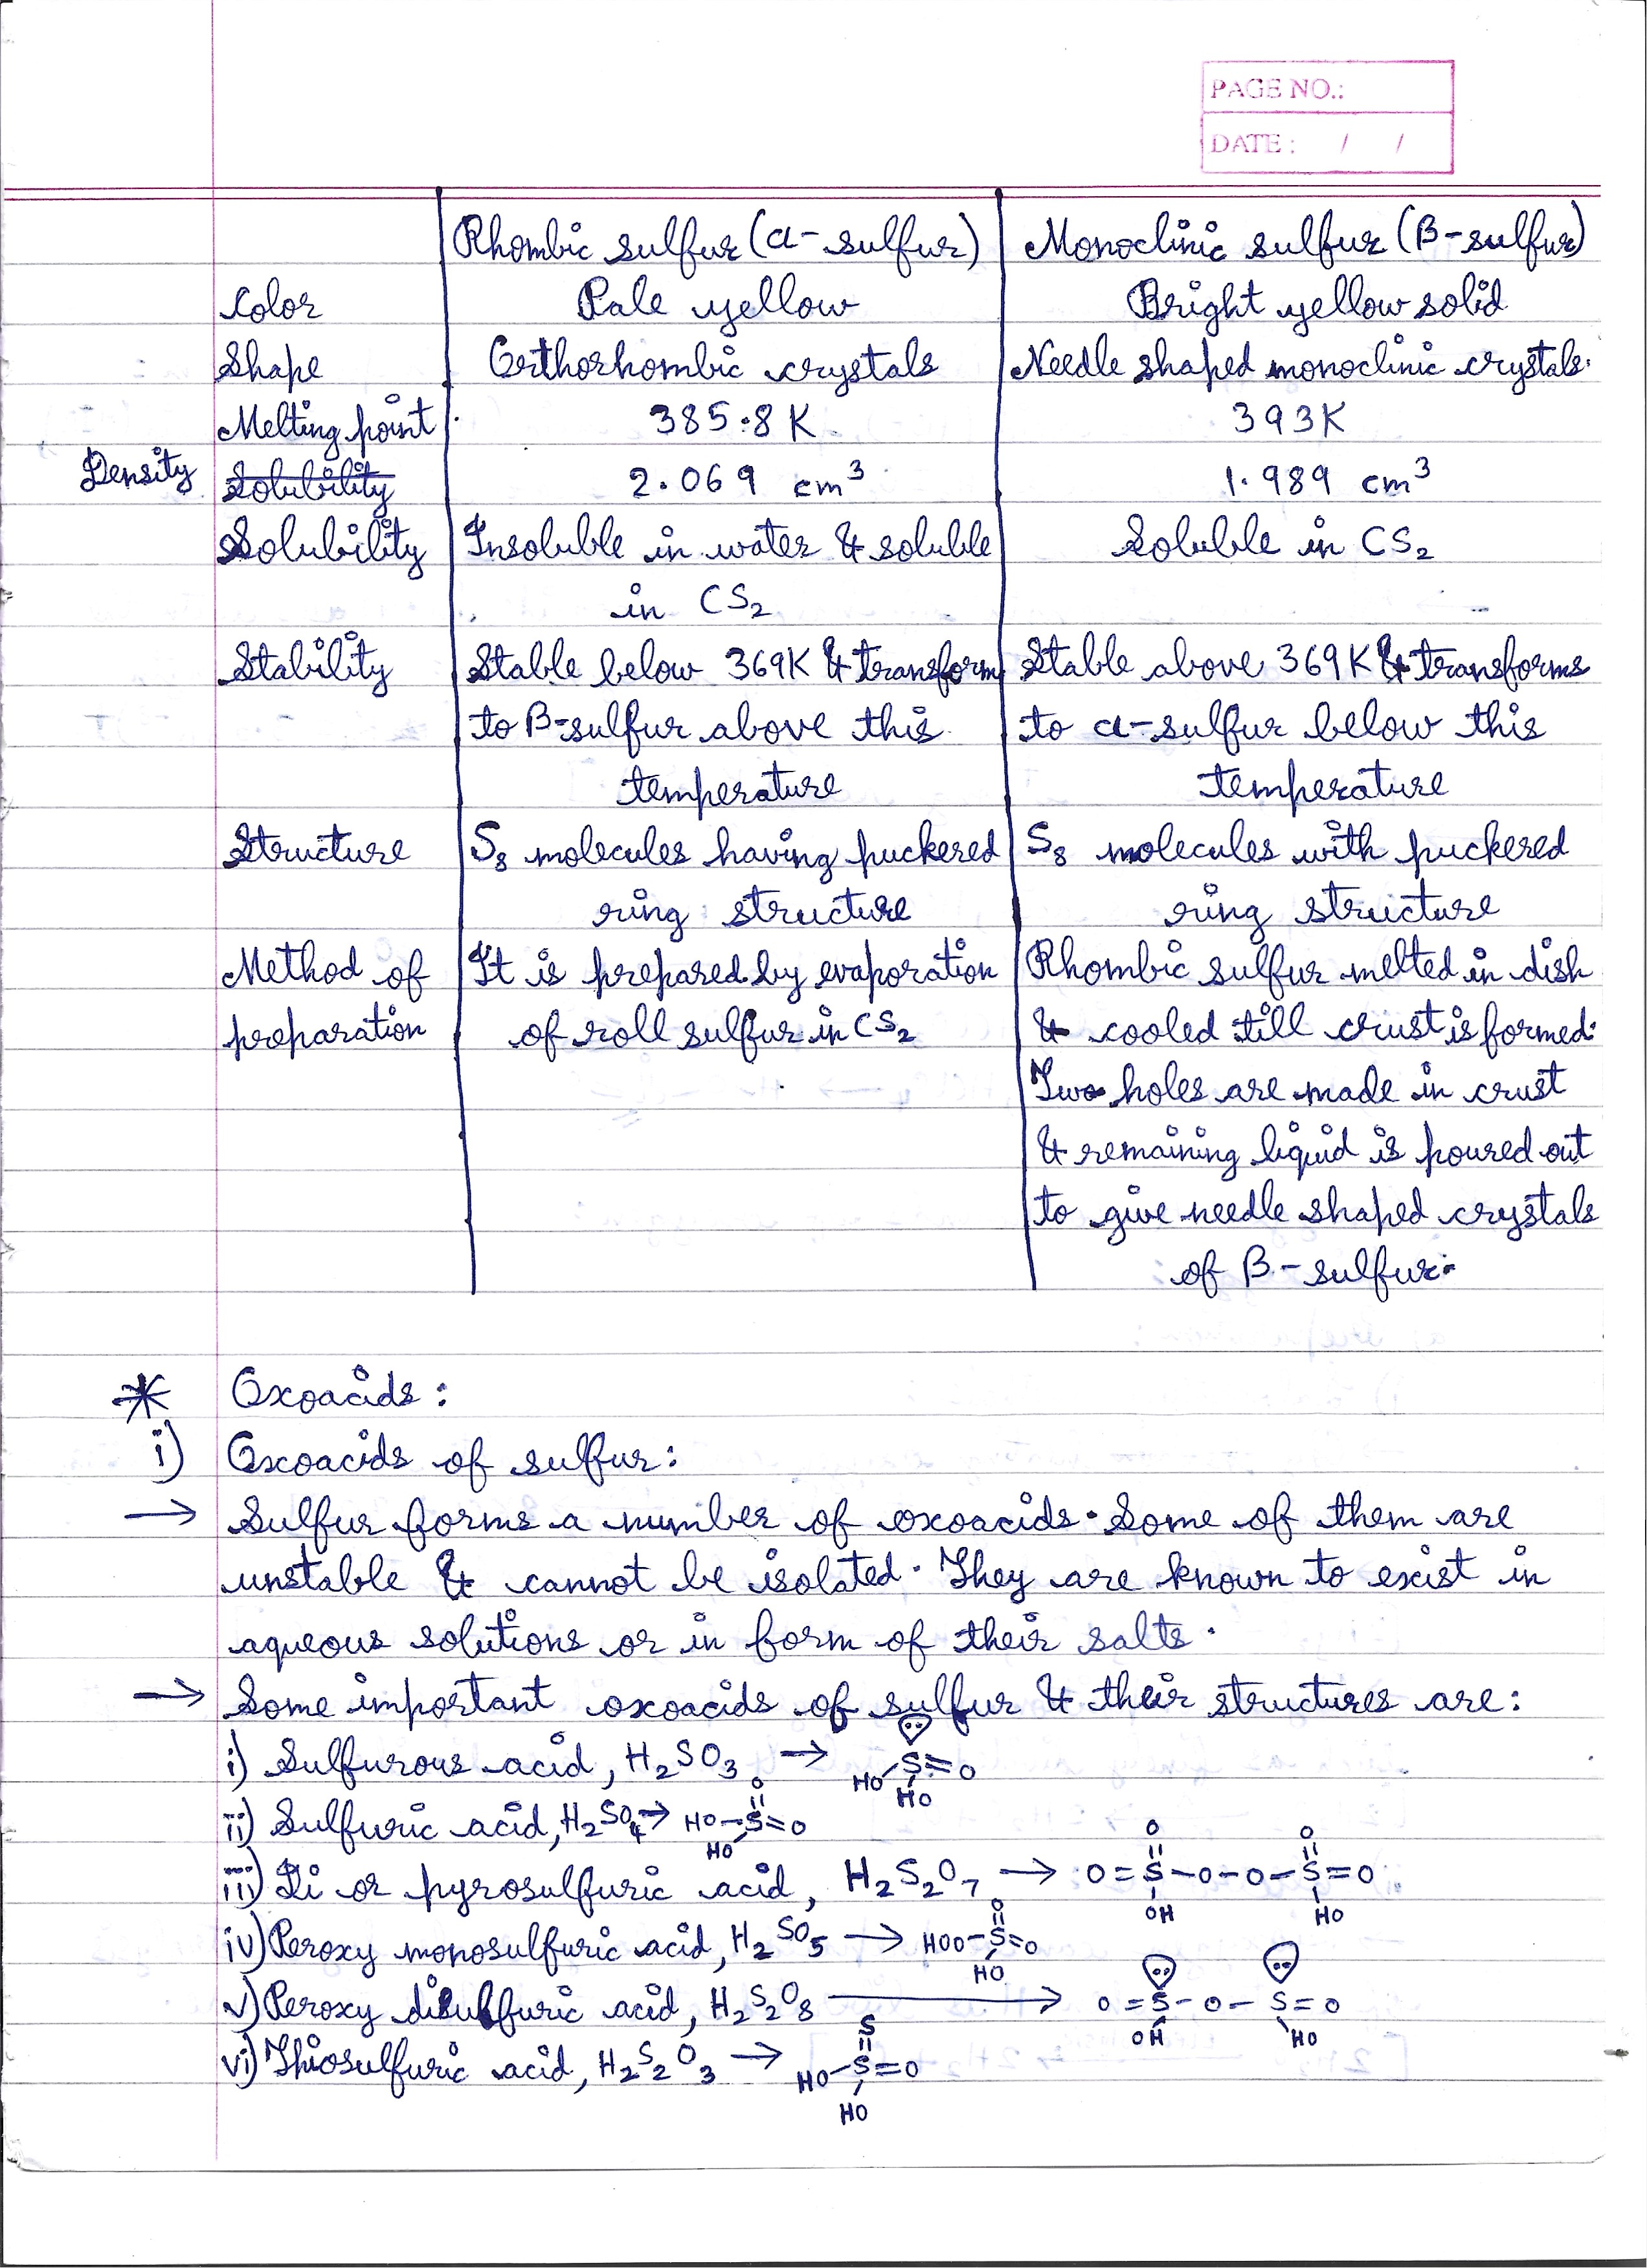 PAGE NO.:
DATE : / /
Rhombic sulfur (α- sulfur) Monoclinic sulfur (β-sulfur)
Color Pale yellow Bright yellow solid
Shape Orthorhombic crystals Needle shaped monoclinic crystals.
Melting point 385.8 K 393K
Density Solubility 2.069 cm³ 1.989 cm³
Solubility Insoluble in water & soluble Soluble in CS₂
in CS₂
Stability Stable below 369K & transform Stable above 369K & transforms
to β-sulfur above this to α-sulfur below this
temperature temperature
Structure S₈ molecules having puckered S₈ molecules with puckered
ring structure ring structure
Method of It is prepared by evaporation Rhombic sulfur melted in dish
preparation of roll sulfur in CS₂ & cooled till crust is formed.
Two holes are made in crust
& remaining liquid is poured out
to give needle shaped crystals
of β-sulfur.
* Oxoacids :
i) Oxoacids of sulfur :
→ Sulfur forms a number of oxoacids. Some of them are
unstable & cannot be isolated. They are known to exist in
aqueous solutions or in form of their salts.
→ Some important oxoacids of sulfur & their structures are :
i) Sulfurous acid, H₂SO₃ → HO S=O
HO
O
ii) Sulfuric acid, H₂SO₄→ HO-S=O
HO
O O
iii) Di or pyrosulfuric acid, H₂S₂O₇ → O=S-O-O-S=O
OH HO
O
iv) Peroxy monosulfuric acid, H₂SO₅ → HOO-S=O
HO
v) Peroxy disulfuric acid, H₂S₂O₈ → O=S-O-S=O
OH HO
S
vi) Thiosulfuric acid, H₂S₂O₃ → HO-S=O
HO